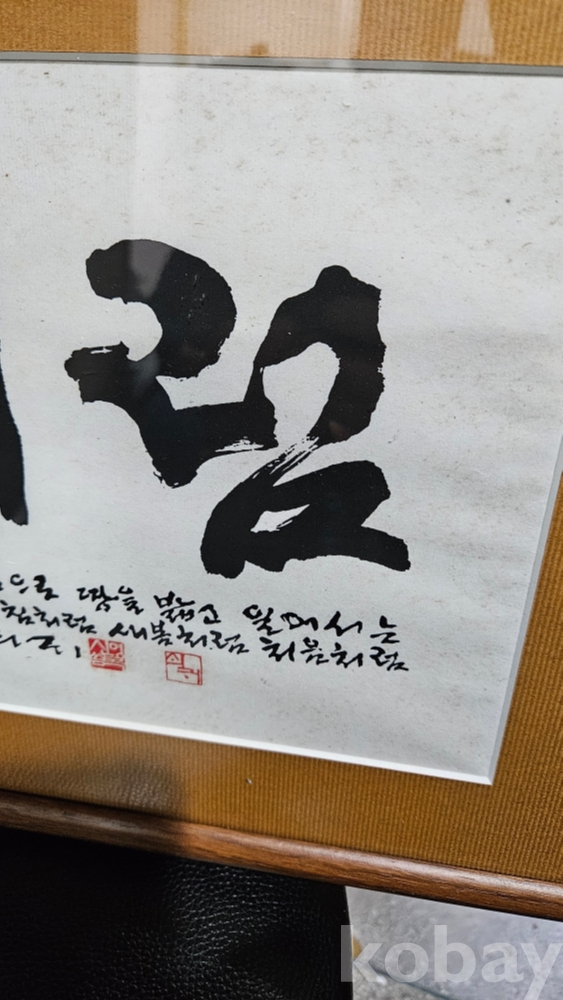 럼
으로 땅을 밟고 일어서는
처럼 새봄처럼 처음처럼
kobay